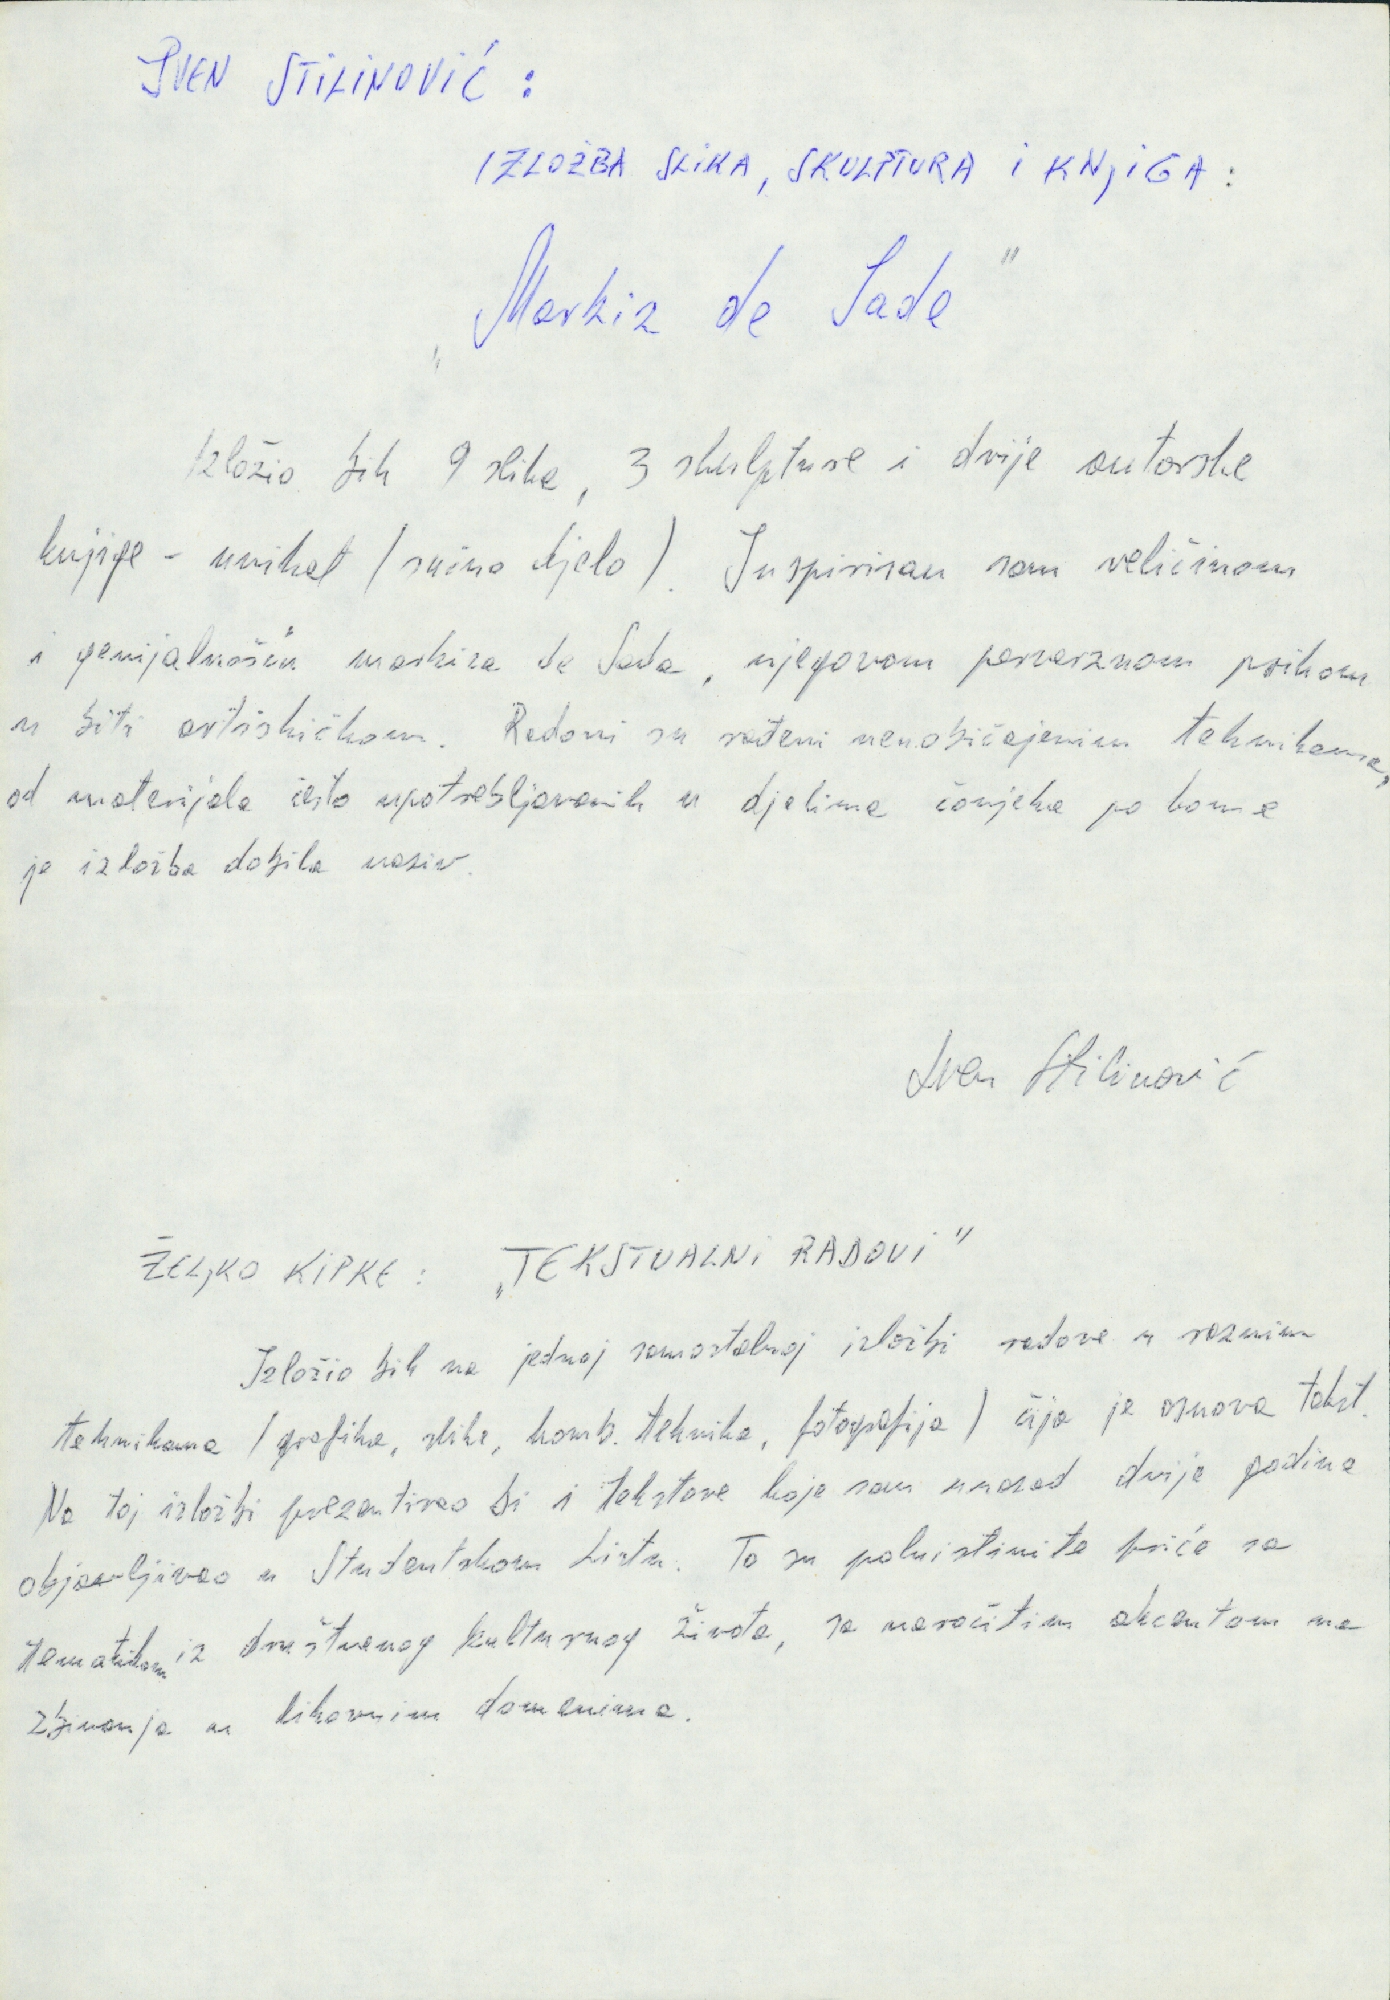 SVEN STILINOVIĆ :
IZLOŽBA SLIKA, SKULPTURA i KNJiGA :
„Markiz de Sade"
Izložio bih 9 slika, 3 skulpture i dvije autorske
knjige - unikat (ručno djelo). Inspirisan sam veličinom
i genijalnošću markiza de Sada, njegovom perverznom psihom
u biti artističkom. Radovi su rađeni neuobičajenim tehnikama,
od materijala često upotrebljavanih u djelima čovjeka po kome
je izložba dobila naziv.
Sven Stilinović
ŽELJKO KIPKE : „TEKSTUALNI RADOVI"
Izložio bih na jednoj samostalnoj izložbi radove u raznim
tehnikama (grafika, slika, komb. tehnika, fotografija) čija je osnova tekst.
Na toj izložbi prezentirao bi i tekstove koje sam unazad dvije godine
objavljivao u Studentskom Listu. To su poluistinite priče sa
tematikom iz društvenog kulturnog života, sa naročitim akcentom na
zbivanja u likovnim domenima.